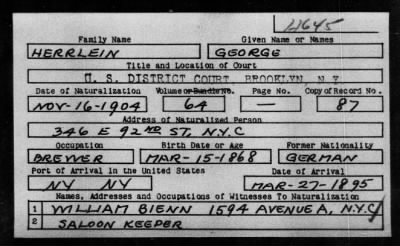 4645
Family Name Given Name or Names
HERRLEIN GEORGE
Title and Location of Court
U. S. DISTRICT COURT, BROOKLYN, N.Y.
Date of Naturalization Volume or Bundle No. Page No. Copy of Record No.
NOV-16-1904 64 — 87
Address of Naturalized Person
346 E 92ND ST, N.Y.C
Occupation Birth Date or Age Former Nationality
BREWER MAR-15-1868 GERMAN
Port of Arrival in the United States Date of Arrival
NY NY MAR-27-1895
Names, Addresses and Occupations of Witnesses To Naturalization
1 WILLIAM BIENN 1594 AVENUE A, N.Y.C
2 SALOON KEEPER